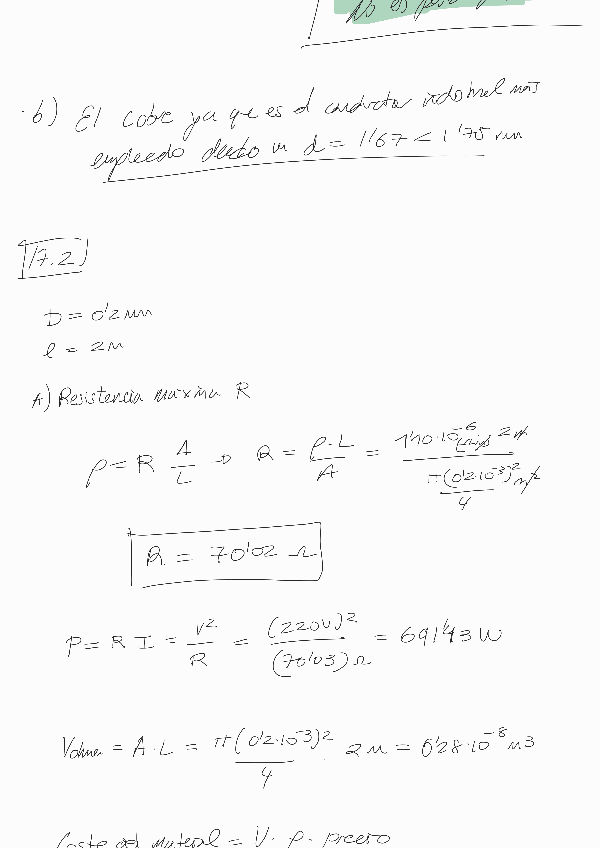 No es
b) El cobre ya que es el conductor industrial más
empleado d = 1'67 < 1'75 mm
17.2
D = 0'2 mm
l = 2 m
A) Resistencia maxima R
ρ = R A/L ⇒ R = ρ·L/A = 1'10·10⁻⁶ 2 m / π(0'2·10⁻³)² m² / 4
R = 70'02 Ω
P = R I = V²/R = (220V)²/(70'03) Ω = 691'43 W
Volumen = A·L = π(0'2·10⁻³)²/4 2 m = 6'28·10⁻⁸ m3
Coste del material = V · ρ · precio